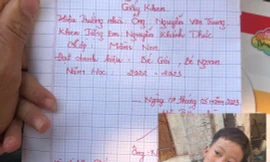 Giấy Khen
Hiệu Trưởng nhà: Ông. Nguyễn Văn Trung.
Khen Tặng Em: Nguyễn Khánh Thức
Lớp: Mầm Non.
Đạt danh hiệu: Bé Giỏi, Bé Ngoan
Năm Học: 2022 - 2023.
Ngày 19 tháng 05 năm 2023.